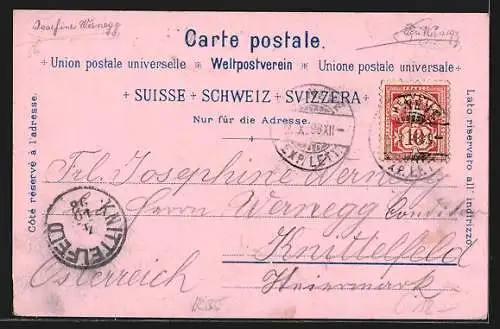 Josefine Wernegg
Carte postale.
Union postale universelle Weltpostverein Unione postale universale
SUISSE SCHWEIZ SVIZZERA
Nur für die Adresse.
Côté réservé à l'adresse.
Lato riservato all'indirizzo.
GENÈVE
EXP. LETT.
10
Frl. Josephine Wernegg
Herrn Wernegg Conditor
Knittelfeld
Österreich Steiermark
KNITTELFELD
98